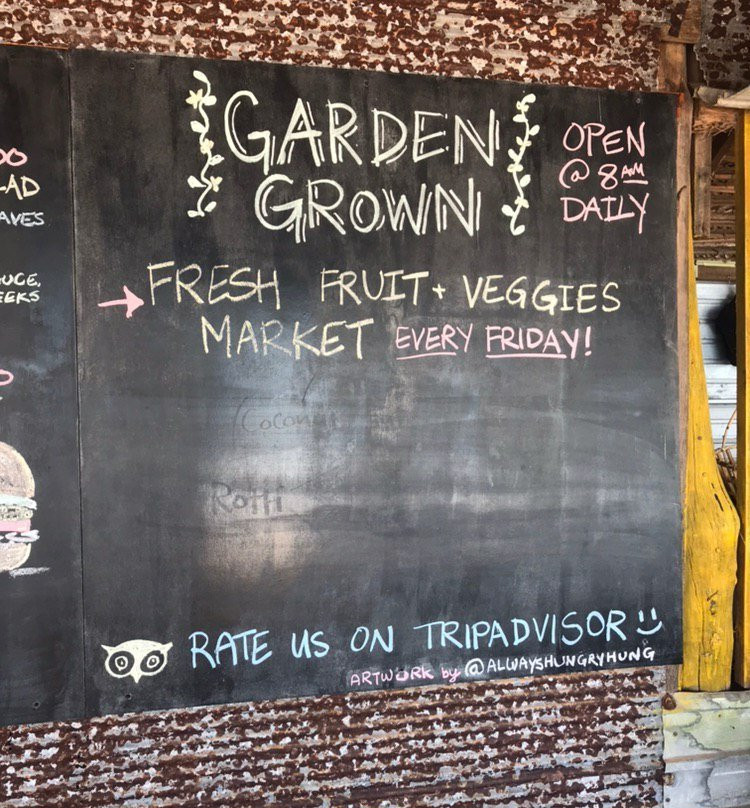 GARDEN
GROWN
OPEN
@ 8 AM
DAILY
→ FRESH FRUIT + VEGGIES
MARKET EVERY FRIDAY!
Rotti
RATE US ON TRIPADVISOR
ARTWORK by @ALLWAYSHUNGRYHUNG